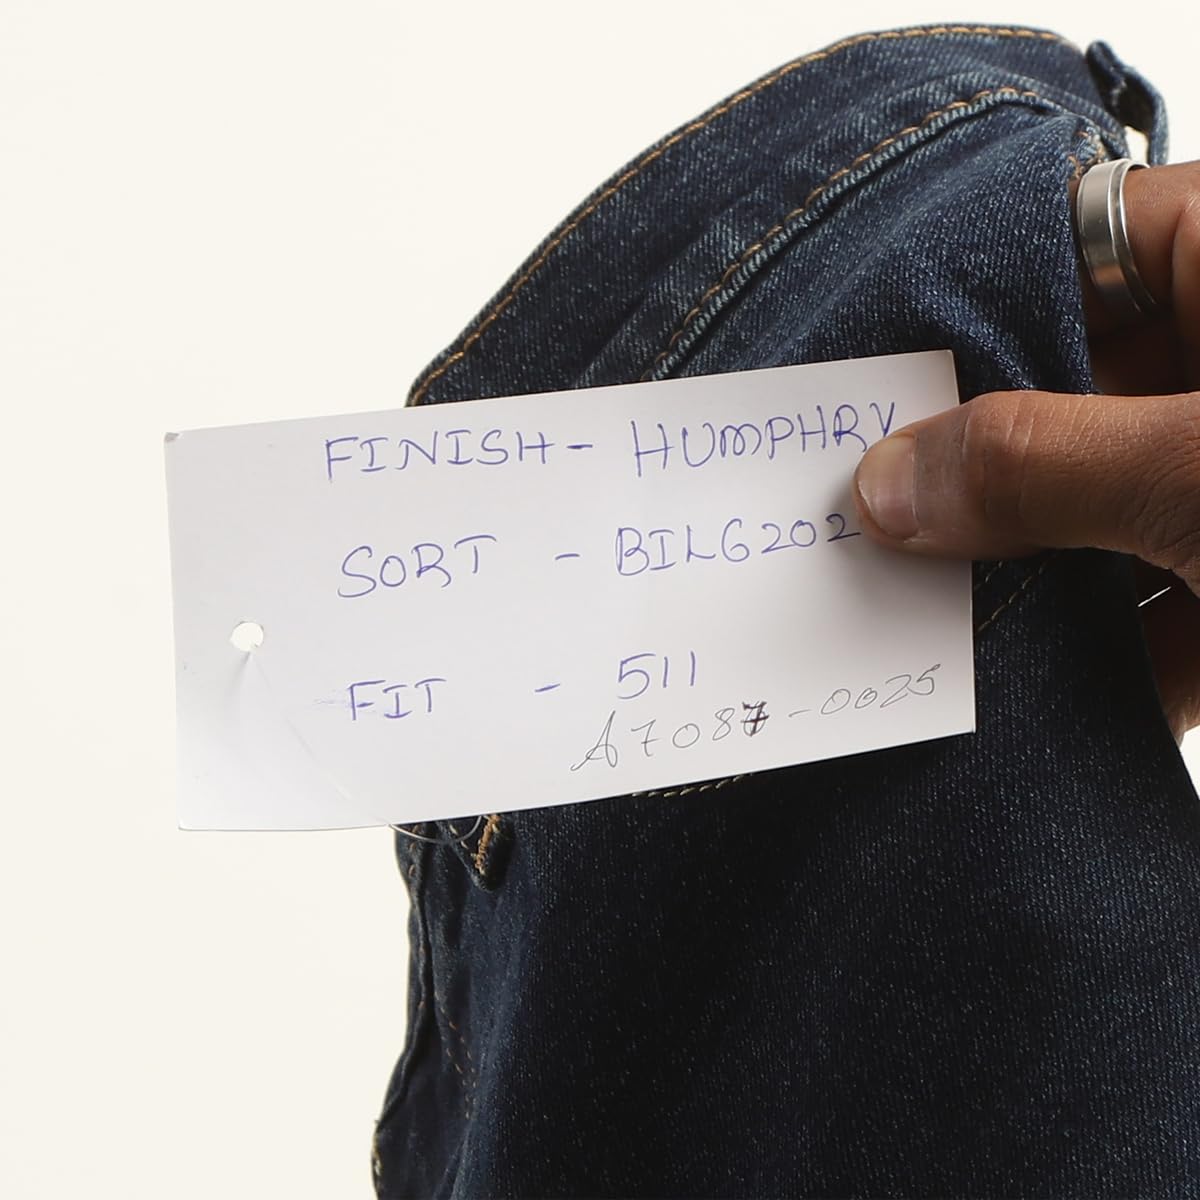 FINISH - HUMPHRY
SORT - BIL6202
FIT - 511
A7087-0025